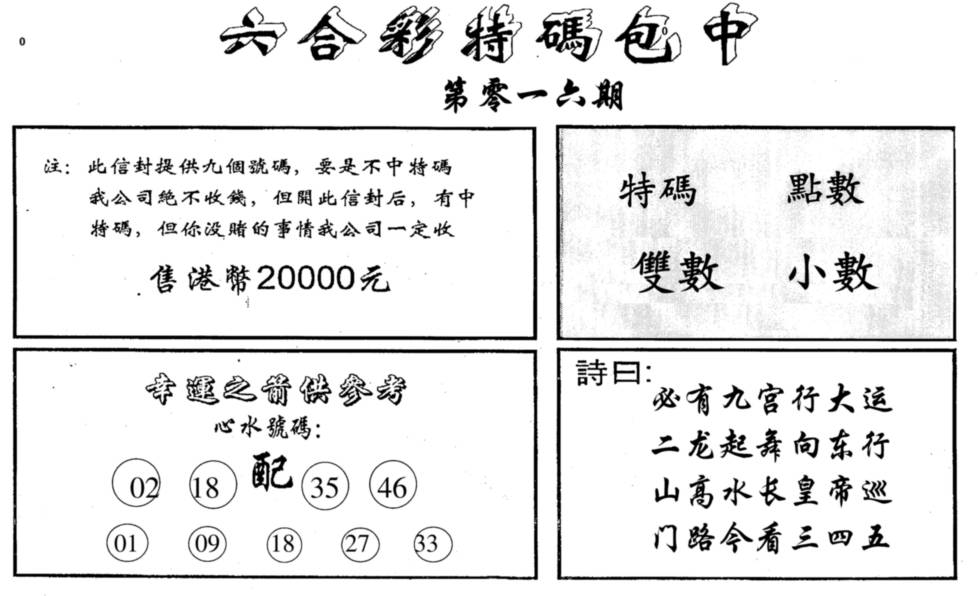 0
六合彩特碼包中
第零一六期
注：此信封提供九個號碼，要是不中特碼
我公司絕不收錢，但開此信封后，有中
特碼，但你没賭的事情我公司一定收
售港幣20000元
特碼 點數
雙數 小數
幸運之箭供參考
心水號碼：
02 18 配 35 46
01 09 18 27 33
詩曰：
必有九宫行大运
二龙起舞向东行
山高水长皇帝巡
门路今看三四五